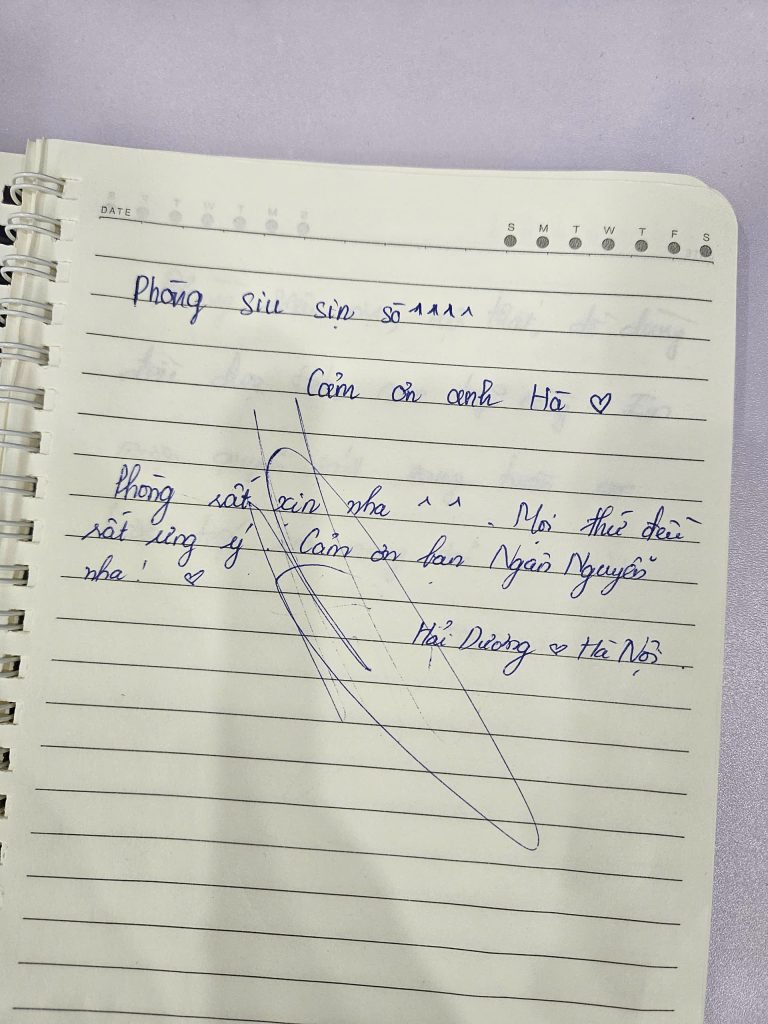 DATE
S M T W T F S
Phòng siu sịn sò ^^^^
Cảm ơn anh Hà ♡
Phòng rất xịn nha ^ ^ . Mọi thứ đều
rất ưng ý ! Cảm ơn bạn Ngân Nguyễn
nha! ♡
Hải Dương ♡ Hà Nội.